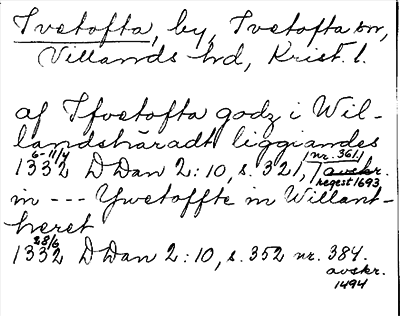 Tvetofta, by, Tvetofta sn,
Villands hd, Krist. l.
af Tfvetofta godz i Wil-
landshäradt liggiandes
6-11/4 nr. 361
1332 D Dan 2:10, s. 321, avskr.
regest 1693
in --- Ywetoffte in Willant-
heret
28/6
1332 D Dan 2:10, s. 352 nr. 384.
avskr.
1494